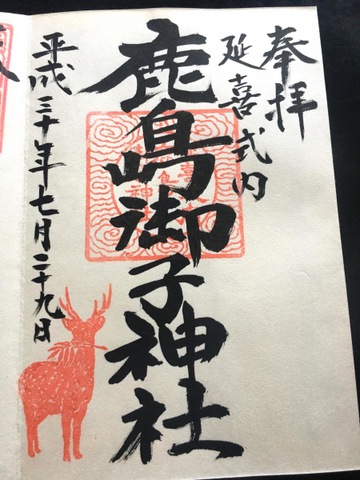 奉拝
延喜式内
鹿島御子神社
平成三十年七月二十九日